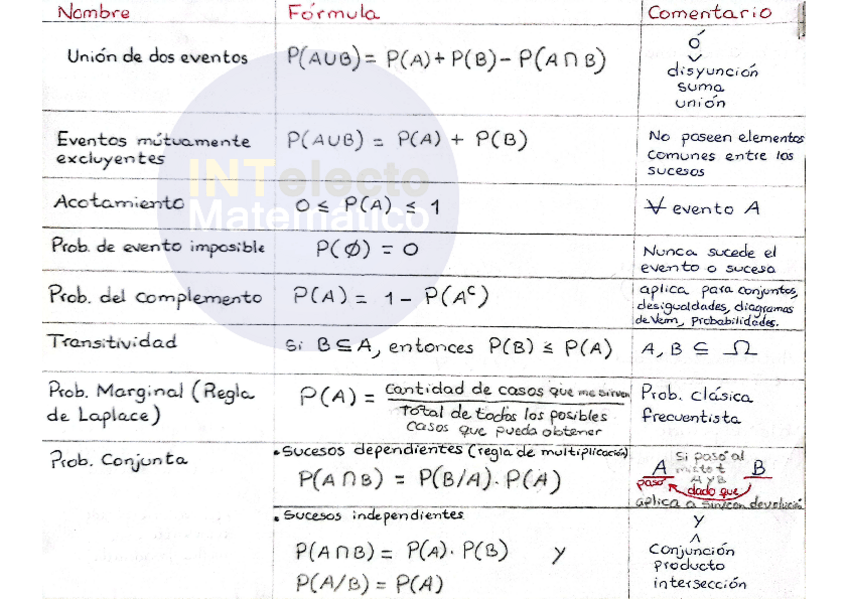 Nombre Fórmula Comentario
Unión de dos eventos P(A∪B) = P(A) + P(B) - P(A ∩ B) Ó
∨
disyunción
suma
unión
Eventos mútuamente excluyentes P(A∪B) = P(A) + P(B) No poseen elementos
comunes entre los
sucesos
INTelecto
Matemático
Acotamiento 0 ≤ P(A) ≤ 1 ∀ evento A
Prob. de evento imposible P(∅) = 0 Nunca sucede el
evento o suceso
Prob. del complemento P(A) = 1 - P(Aᶜ) aplica para conjuntos,
desigualdades, diagramas
de Venn, probabilidades.
Transitividad Si B ⊆ A, entonces P(B) ≤ P(A) A, B ⊆ Ω
Prob. Marginal (Regla
de Laplace) P(A) = Cantidad de casos que me sirven Prob. clásica
Total de todos los posibles frecuentista
casos que pueda obtener
Prob. Conjunta • Sucesos dependientes (regla de multiplicación)
P(A ∩ B) = P(B/A) . P(A) Si pasó al
A B
A y B
pasó dado que
aplica a sin/con devolución
• Sucesos independientes y
∧
P(A ∩ B) = P(A) . P(B) y Conjunción
producto
P(A/B) = P(A) intersección